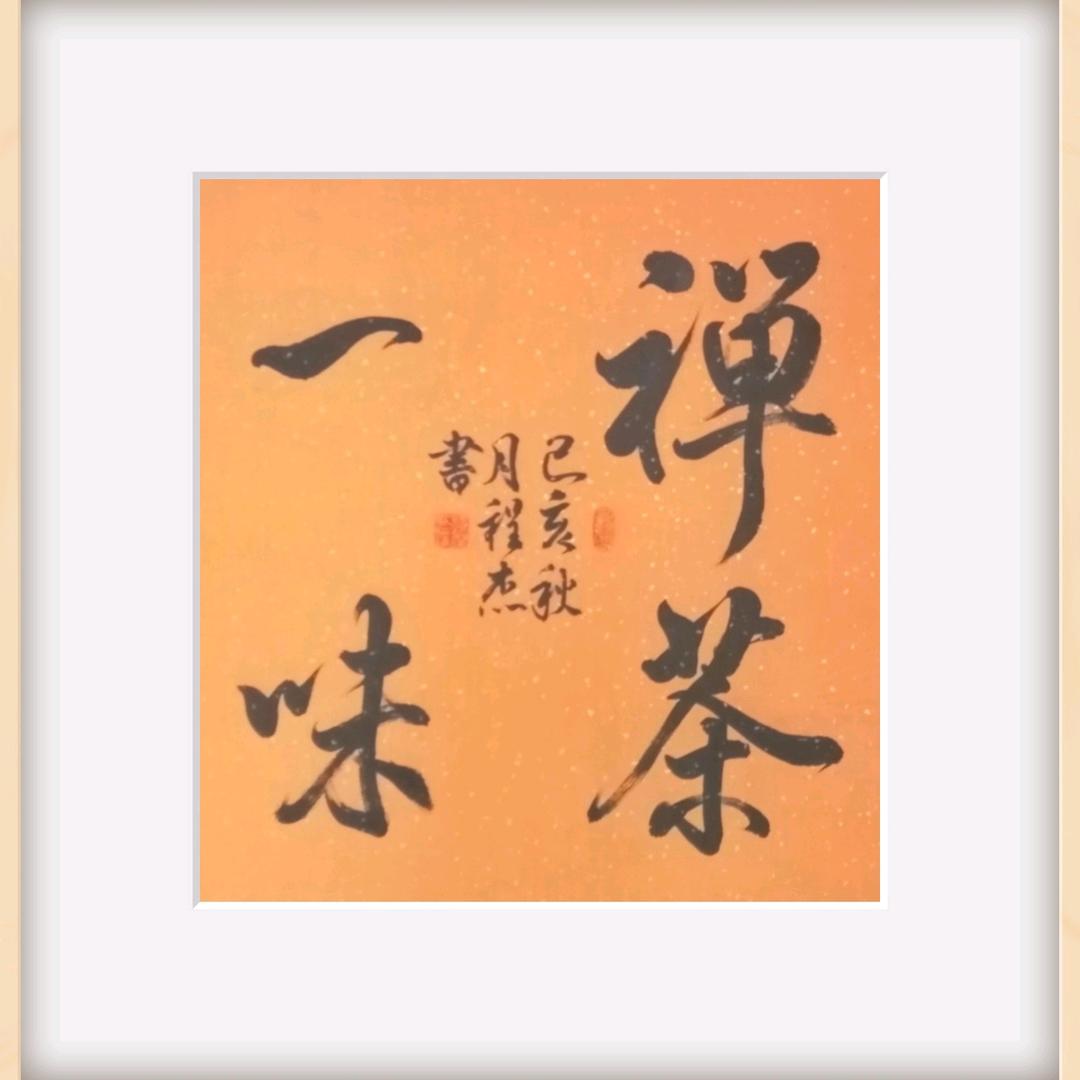 禅茶
一味
己亥秋
月程杰
書